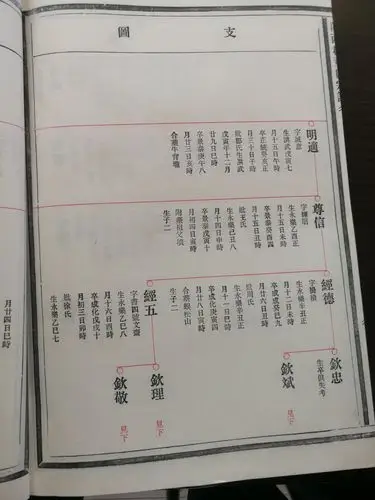 支圖
明適
字誠意
生洪武戊寅七
月十五日午時
卒正統癸亥正
月三十日午時
妣鄒氏生洪武
戊寅年十二月
廿九日巳時
卒景泰庚午八
月廿三日亥時
合葬牛背壠
尊信
生永樂乙酉正
月十五日未時
卒景泰癸酉四
月十五日丑時
妣王氏
生永樂己丑八
月十四日申時
卒景泰戊寅十
月初四日寅時
附葬祖父墳
生子二
經德
生永樂辛丑正
月十二日未時
卒成化癸巳九
月廿六日丑時
妣周氏
生永樂辛丑正
月十一日丑時
卒成化庚寅四
月廿八日寅時
合葬蜈蚣山
生子二
欽忠
生卒俱失考
欽斌
見下
經五
字書四號文齋
生永樂乙巳八
月十六日酉時
卒成化戊戌十
月初三日卯時
妣徐氏
生永樂乙巳七
欽理
見下
欽敬
見下
月廿四日巳時